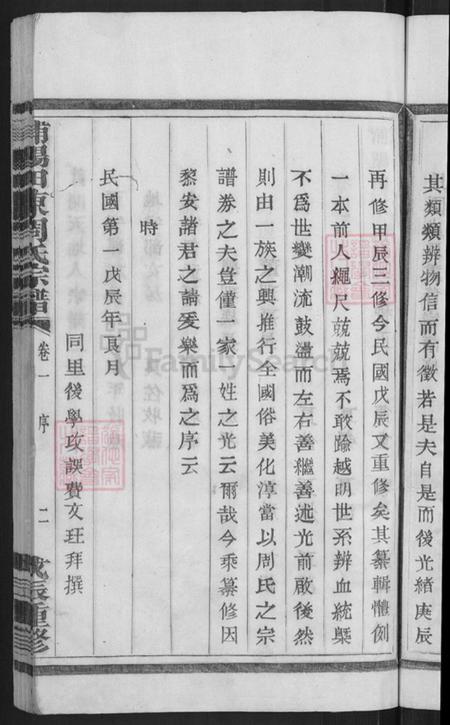 其類類辨物信而有徵若是夫自是而後光緒庚辰
再修甲辰三修今民國戊辰又重修矣其纂輯體例
一本前人繩尺兢兢焉不敢踰越明世系辨血統槩
不爲世變潮流鼓盪而左右善繼善述光前啟後然
則由一族之興推行全國俗美化淳當以周氏之宗
譜券之夫豈僅一家一姓之光云爾哉今乘纂修因
黎安諸君之請爰樂而爲之序云
時
民國第一戊辰年良月
同里後學攻誤費文玨拜撰
浦陽田東周氏宗譜
卷一 序 二
戊辰重修
FamilySearch